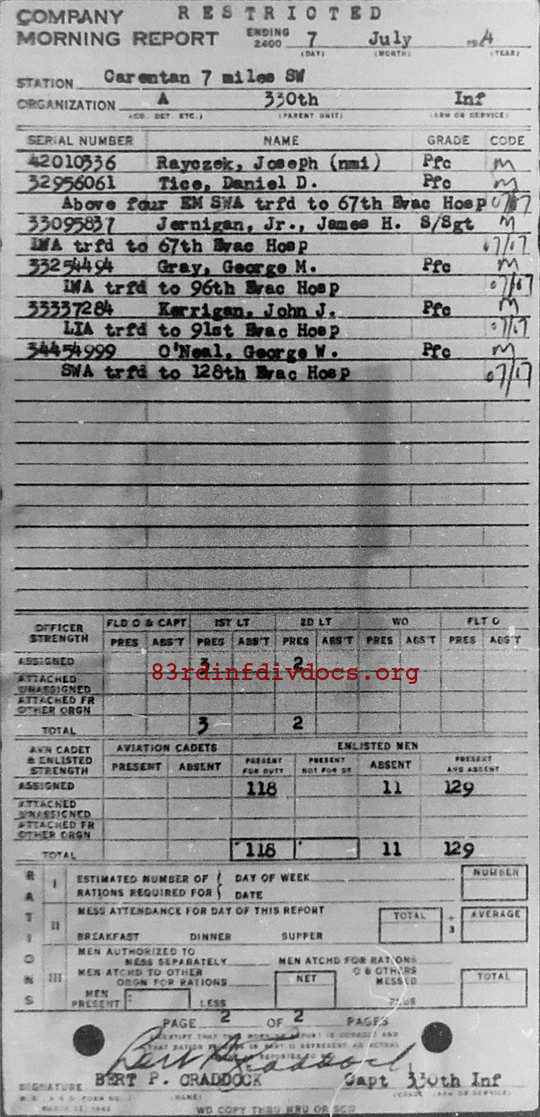 RESTRICTED
COMPANY
MORNING REPORT ENDING 2400 7 July 4
(DAY) (MONTH) (YEAR)
STATION Carentan 7 miles SW
ORGANIZATION A 330th Inf
(CO. DET. ETC.) (PARENT UNIT) (ARM OR SERVICE)
SERIAL NUMBER NAME GRADE CODE
42010336 Rayczek, Joseph (nmi) Pfc M
32956061 Tice, Daniel D. Pfc M
Above four EM SWA trfd to 67th Evac Hosp
33095837 Jernigan, Jr., James H. S/Sgt M
LWA trfd to 67th Evac Hosp 07/07
33254494 Gray, George M. Pfc M
LWA trfd to 96th Evac Hosp 07/07
33337284 Kerrigan, John J. Pfc M
LIA trfd to 91st Evac Hosp 07/07
34454999 O'Neal, George W. Pfc M
SWA trfd to 128th Evac Hosp 07/07
OFFICER STRENGTH FLD O & CAPT 1ST LT 2D LT WO FLT O
PRES ABS'T PRES ABS'T PRES ABS'T PRES ABS'T PRES ABS'T
ASSIGNED 3 2
83rdinfdivdocs.org
ATTACHED UNASSIGNED
ATTACHED FR OTHER ORGN
TOTAL 3 2
AVN CADET & ENLISTED STRENGTH AVIATION CADETS ENLISTED MEN
PRESENT ABSENT PRESENT FOR DUTY PRESENT NOT FOR DY ABSENT PRESENT AND ABSENT
ASSIGNED 118 11 129
ATTACHED UNASSIGNED
ATTACHED FR OTHER ORGN
TOTAL 118 11 129
RATIONS
I ESTIMATED NUMBER OF RATIONS REQUIRED FOR DAY OF WEEK DATE NUMBER
II MESS ATTENDANCE FOR DAY OF THIS REPORT TOTAL ÷ 3 AVERAGE
BREAKFAST DINNER SUPPER
III MEN AUTHORIZED TO MESS SEPARATELY MEN ATCHD FOR RATIONS
MEN ATCHD TO OTHER ORGN FOR RATIONS NET O & OTHERS MESSED TOTAL
MEN PRESENT LESS PLUS
PAGE 2 OF 2 PAGES
Bert P Craddock
SIGNATURE BERT P. CRADDOCK Capt 330th Inf
(NAME) (GRADE) (ARM OR SERVICE)
WD COPY THRU MRU OR SCU